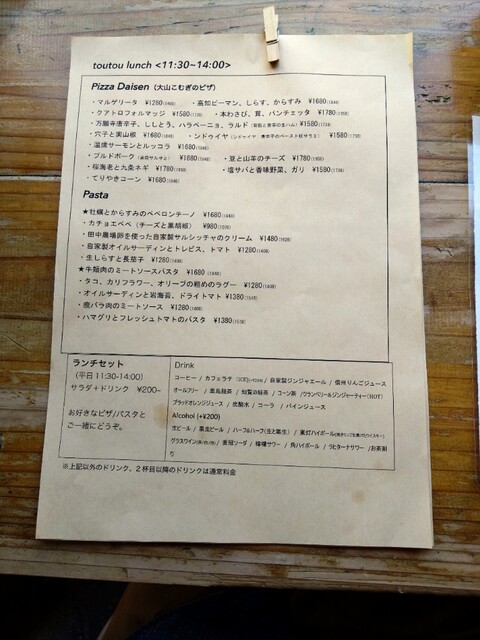 toutou lunch <11:30~14:00>
Pizza Daisen (大山こむぎのピザ)
・マルゲリータ ¥1280(1408) ・高知ピーマン、しらす、からすみ ¥1680(1848)
・クアトロフォルマッジ ¥1580(1738) ・本わさび、茸、パンチェッタ ¥1780(1958)
・万願寺唐辛子、ししとう、ハラペーニョ、ラルド ¥1580(1738)
・穴子と実山椒 ¥1680(1848) ・ンドゥイヤ ¥1580(1738)
・温燻サーモンとルッコラ ¥1680(1848)
・プルドポーク ¥1680(1848) ・豆と山羊のチーズ ¥1780(1958)
・桜海老と九条ネギ ¥1780(1958) ・塩サバと香味野菜、ガリ ¥1580(1738)
・てりやきコーン ¥1680(1848)
Pasta
★牡蠣とからすみのペペロンチーノ ¥1680(1848)
・カチョエペペ (チーズと黒胡椒) ¥980(1078)
・田中農場卵を使った自家製サルシッチャのクリーム ¥1480(1628)
・自家製オイルサーディンとトレビス、トマト ¥1280(1408)
・生しらすと長茄子 ¥1280(1408)
★牛頬肉のミートソースパスタ ¥1680(1848)
・タコ、カリフラワー、オリーブの軽めのラグー ¥1280(1408)
・オイルサーディンと岩海苔、ドライトマト ¥1380(1518)
・鹿バラ肉のミートソース ¥1280(1408)
・ハマグリとフレッシュトマトのパスタ ¥1380(1518)
ランチセット
(平日 11:30-14:00)
サラダ+ドリンク ¥200~
お好きなピザ/パスタと
ご一緒にどうぞ。
Drink
コーヒー / カフェラテ / 自家製ジンジャエール / 信州りんごジュース
オールフリー / 知覧の緑茶 / コーン茶 / クランベリー&ジンジャーティー(HOT)
ブラッドオレンジジュース / 炭酸水 / コーラ / パインジュース
Alcohol (+¥200)
生ビール / 黒生ビール / ハーフ&ハーフ(生と黒生) / 東灯ハイボール
グラスワイン / 檸檬サワー / 角ハイボール / ラヒターナサワー / お茶割
り
※上記以外のドリンク、2杯目以降のドリンクは通常料金